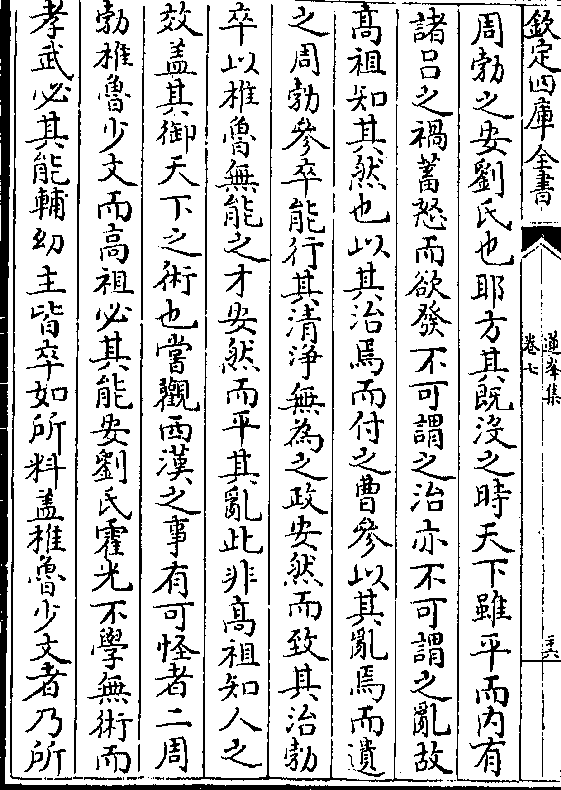 欽定四庫全書
蓮峯集
卷七
周勃之安劉氏也耶方其既沒之時天下雖平而内有
諸吕之禍蓄怒而欲發不可謂之治亦不可謂之亂故
髙祖知其然也以其治焉而付之曹參以其亂焉而遺
之周勃參卒能行其清浄無為之政安然而致其治勃
卒以椎魯無能之才安然而平其亂此非髙祖知人之
效盖其御天下之術也嘗觀西漢之事有可怪者二周
勃椎魯少文而高祖必其能安劉氏霍光不學無術而
孝武必其能輔幼主皆卒如所料盖椎魯少文者乃所